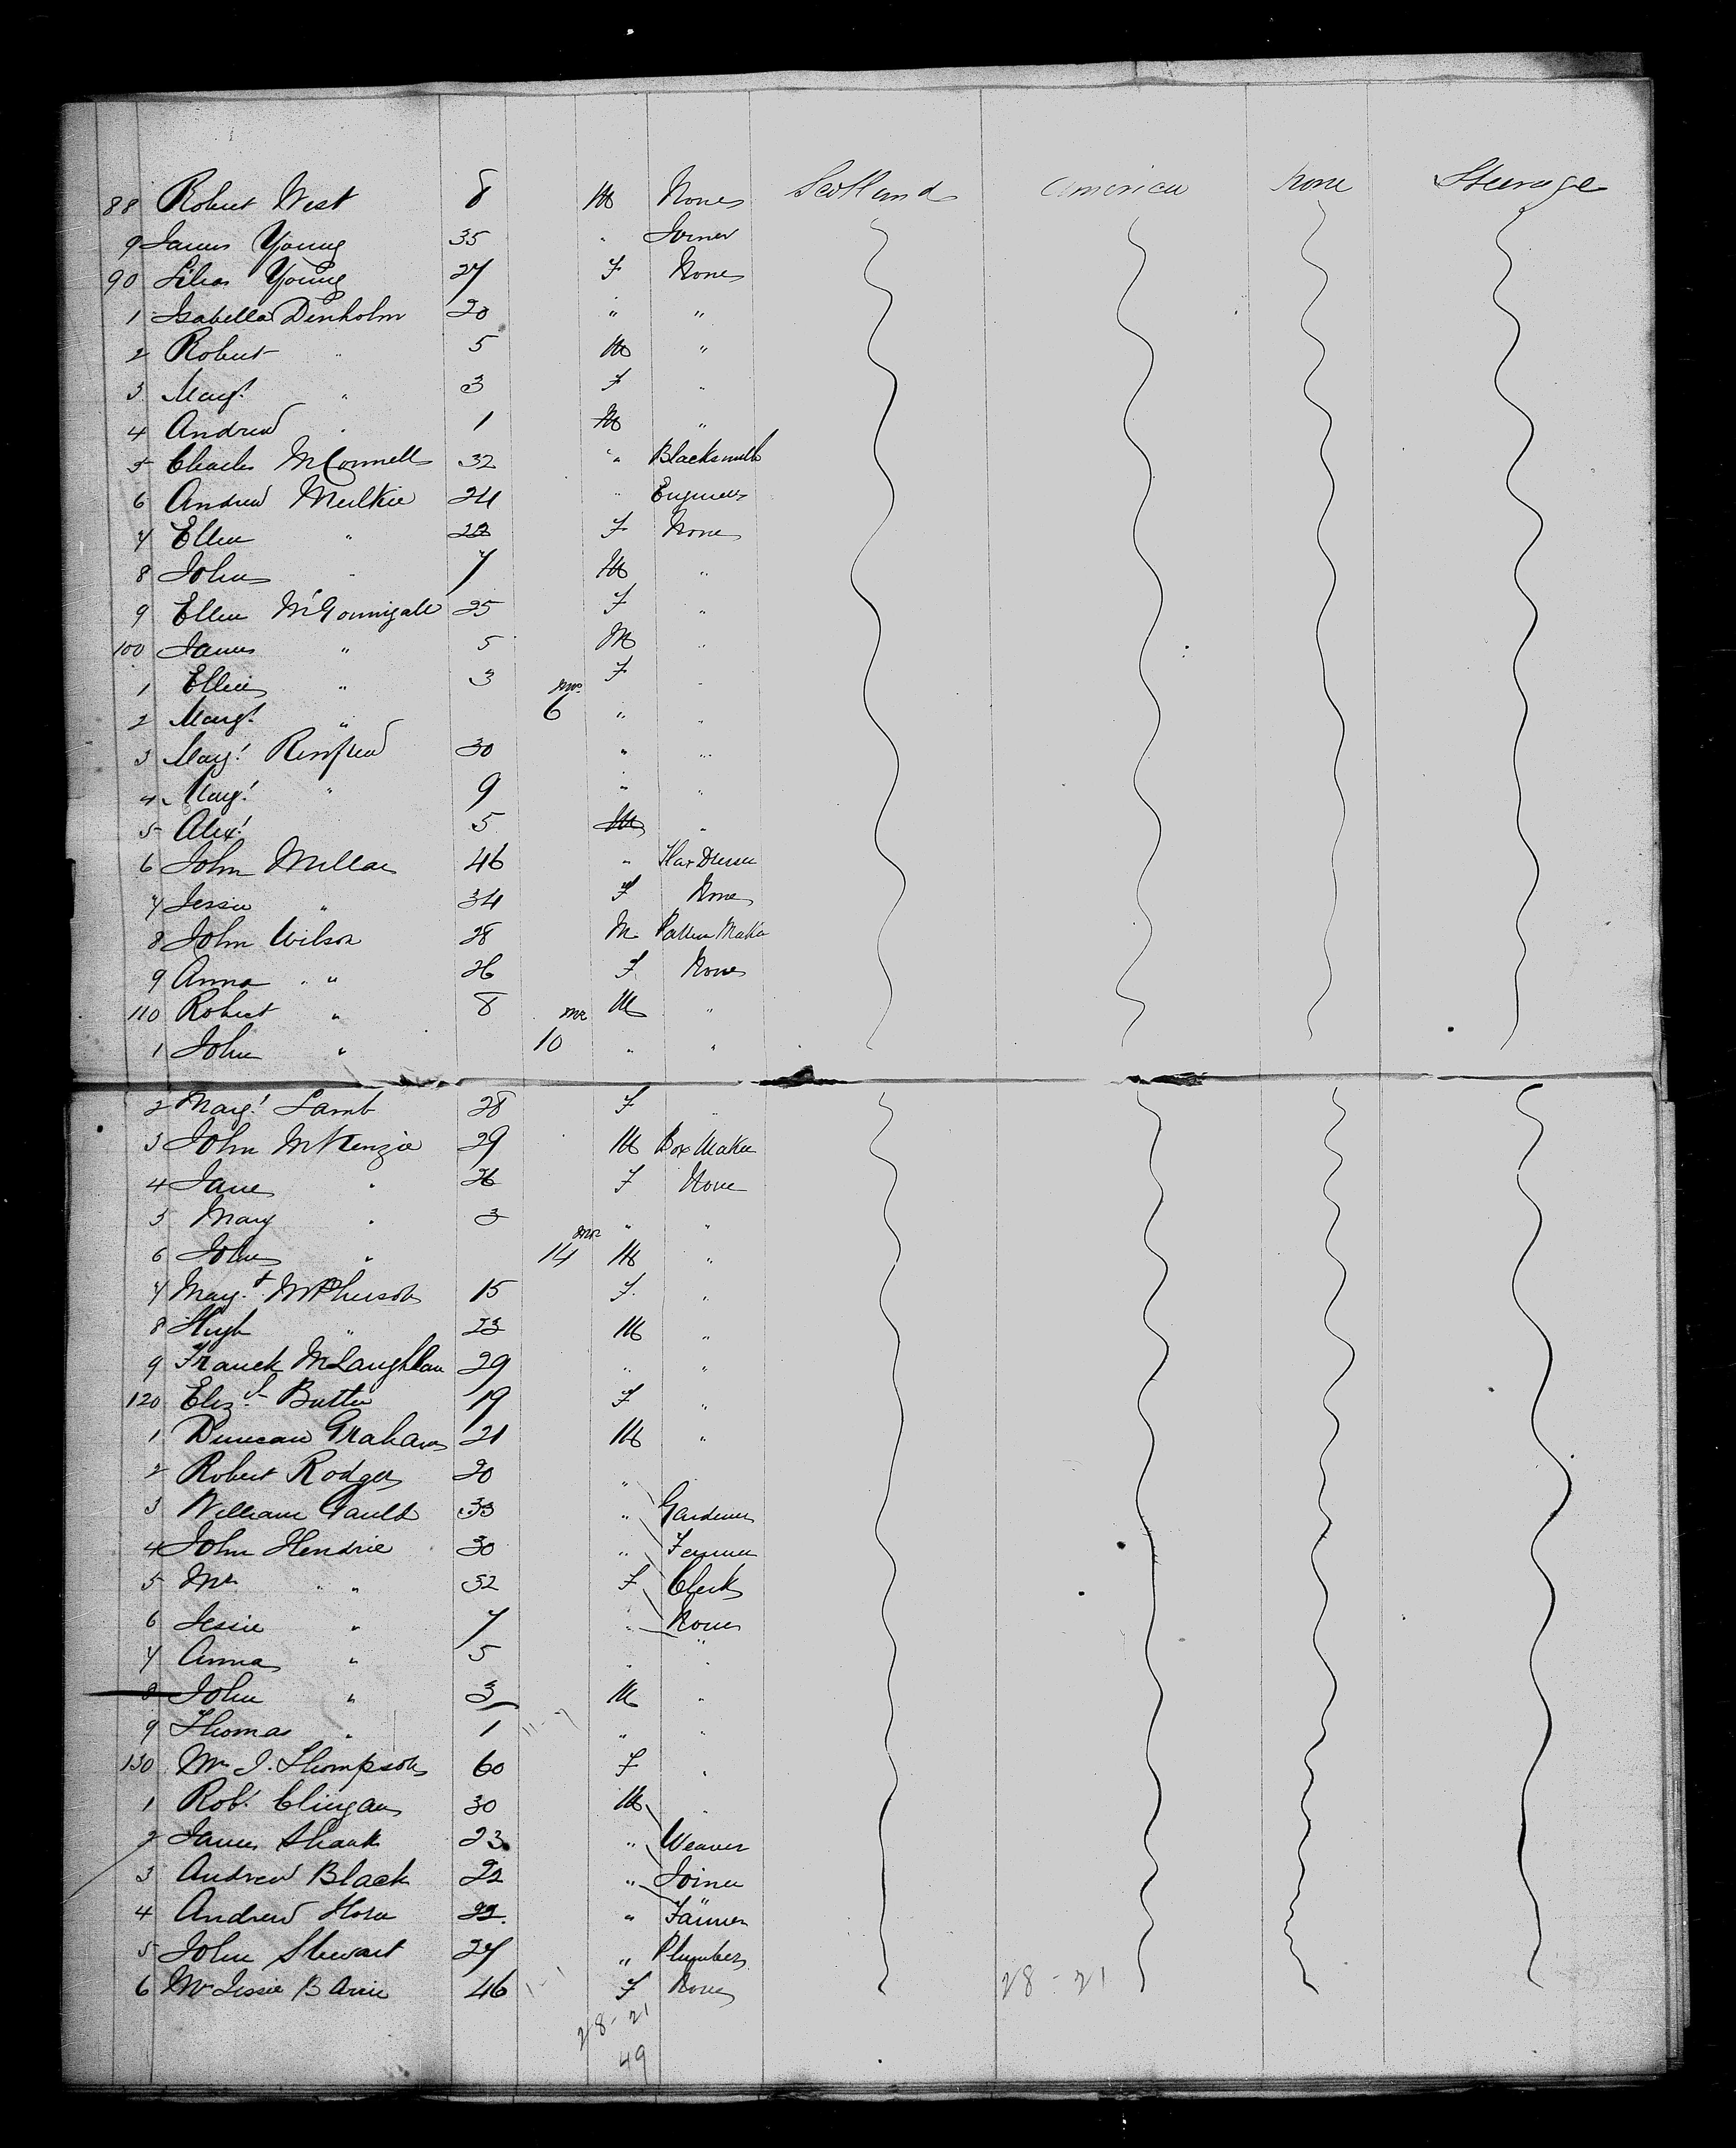 88 Robert West 8 M None Scotland America None Steerage
9 James Young 35 " Joiner
90 Lilias Young 27 F None
1 Isabella Denholm 20 " "
2 Robert " 5 M "
3 Margt. " 3 F "
4 Andrew " 1 M "
5 Charles McConnell 32 " Blacksmith
6 Andrew Meikle 24 " Engineer
7 Ellen " 22 F None
8 John " 7 M "
9 Ellen McGonnigall 25 F "
100 James " 5 M "
1 Ellen " 3 F "
2 Margt. " 6 mos " "
3 Margt. Renfrew 30 " "
4 Margt. " 9 " "
5 Alexr. 5 M "
6 John Millar 46 " Flax Dresser
7 Jessie " 34 F None
8 John Wilson 28 M Pattern Maker
9 Anna " 26 F None
110 Robert " 8 M "
1 John " 10 mos " "
2 Margt. Lamb 28 F "
3 John McKenzie 29 M Box Maker
4 Jane " 26 F None
5 Mary " 3 " "
6 John " 14 mos M "
7 Margt. McPherson 15 F "
8 Hugh " 23 M "
9 Franck McLaughlan 29 " "
120 Elizth. Butter 19 F "
1 Duncan Graham 21 M "
2 Robert Rodger 20 "
3 William Gault 33 " Gardener
4 John Hendrie 30 " Farmer
5 Mrs " " 32 F Clerk
6 Jessie " 7 " None
7 Anna " 5 " "
8 John " 3 M "
9 Thomas " 1 " "
130 Mrs J. Thompson 60 F "
1 Robt. Clingan 30 M "
2 James Shank 23 " Weaver
3 Andrew Black 22 " Joiner
4 Andrew Horn 22 " Farmer
5 John Stewart 27 " Plumber
6 Mrs Jessie Barrie 46 1-1 F None 28-21
28-21
49